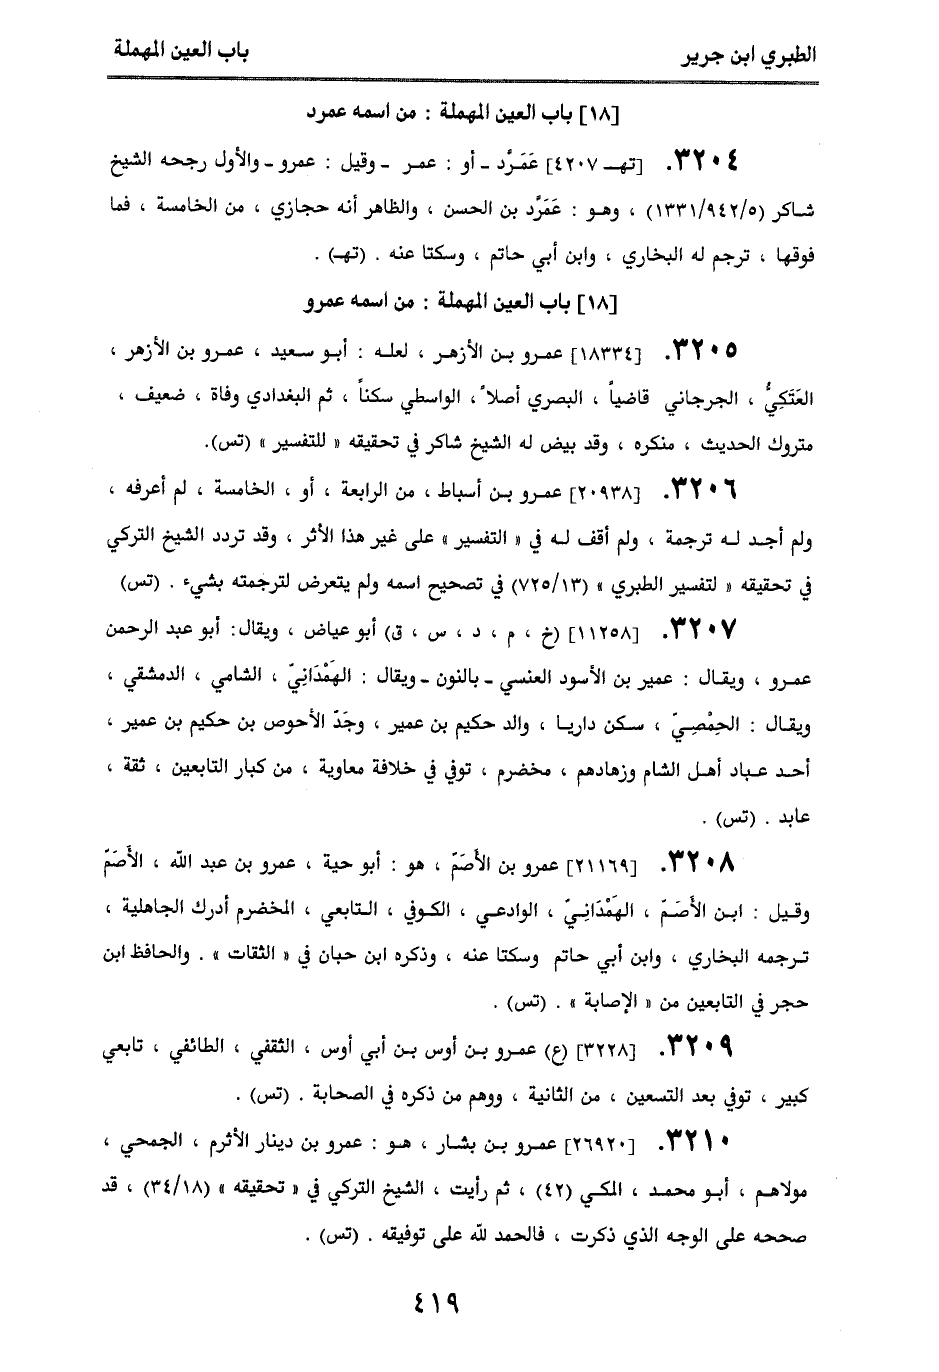 الطبري ابن جرير
باب العين المهملة
[١٨] باب العين المهملة : من اسمه عمرد
٣٢٠٤. [تهـ ٤٢٠٧] عَمَرَّد ـ أو : عمر ـ وقيل : عمرو ـ والأول رجحه الشيخ
شاكر (١٣٣١/٩٤٢/٥) ، وهو : عَمَرَّد بن الحسن ، والظاهر أنه حجازي ، من الخامسة ، فما
فوقها ، ترجم له البخاري ، وابن أبي حاتم ، وسكتا عنه . (تهـ) .
[١٨] باب العين المهملة : من اسمه عمرو
٣٢٠٥. [١٨٣٣٤] عمرو بن الأزهر ، لعله : أبو سعيد ، عمرو بن الأزهر ،
العَتَكِيُّ ، الجرجاني قاضياً ، البصري أصلاً ، الواسطي سكناً ، ثم البغدادي وفاة ، ضعيف ،
متروك الحديث ، منكره ، وقد بيض له الشيخ شاكر في تحقيقه « للتفسير » (تس).
٣٢٠٦. [٢٠٩٣٨] عمرو بن أسباط ، من الرابعة ، أو ، الخامسة ، لم أعرفه ،
ولم أجد له ترجمة ، ولم أقف له في « التفسير » على غير هذا الأثر ، وقد تردد الشيخ التركي
في تحقيقه « لتفسير الطبري » (٧٢٥/١٣) في تصحيح اسمه ولم يتعرض لترجمته بشيء . (تس)
٣٢٠٧. [١١٢٥٨] (خ ، م ، د ، س ، ق) أبو عياض ، ويقال: أبو عبد الرحمن
عمرو ، ويقال : عمير بن الأسود العنسي ـ بالنون ـ ويقال : الهَمْدَانِيّ ، الشامي ، الدمشقي ،
ويقال : الحِمْصِيّ ، سكن داريا ، والد حكيم بن عمير ، وجَدّ الأحوص بن حكيم بن عمير ،
أحد عباد أهل الشام وزهادهم ، مخضرم ، توفي في خلافة معاوية ، من كبار التابعين ، ثقة ،
عابد . (تس) .
٣٢٠٨. [٢١١٦٩] عمرو بن الأَصَمّ ، هو : أبو حية ، عمرو بن عبد الله ، الأَصَمّ
وقيل : ابن الأَصَمّ ، الهَمْدَانِيّ ، الوادعي ، الكوفي ، التابعي ، المخضرم أدرك الجاهلية ،
ترجمه البخاري ، وابن أبي حاتم وسكتا عنه ، وذكره ابن حبان في « الثقات » . والحافظ ابن
حجر في التابعين من « الإصابة » . (تس) .
٣٢٠٩. [٣٢٢٨] (ع) عمرو بن أوس بن أبي أوس ، الثقفي ، الطائفي ، تابعي
كبير ، توفي بعد التسعين ، من الثانية ، ووهم من ذكره في الصحابة . (تس) .
٣٢١٠. [٢٦٩٢٠] عمرو بن بشار ، هو : عمرو بن دينار الأثرم ، الجمحي ،
مولاهم ، أبو محمد ، المكي (٤٢) ، ثم رأيت ، الشيخ التركي في « تحقيقه » (٣٤/١٨) ، قد
صححه على الوجه الذي ذكرت ، فالحمد لله على توفيقه . (تس) .
٤١٩